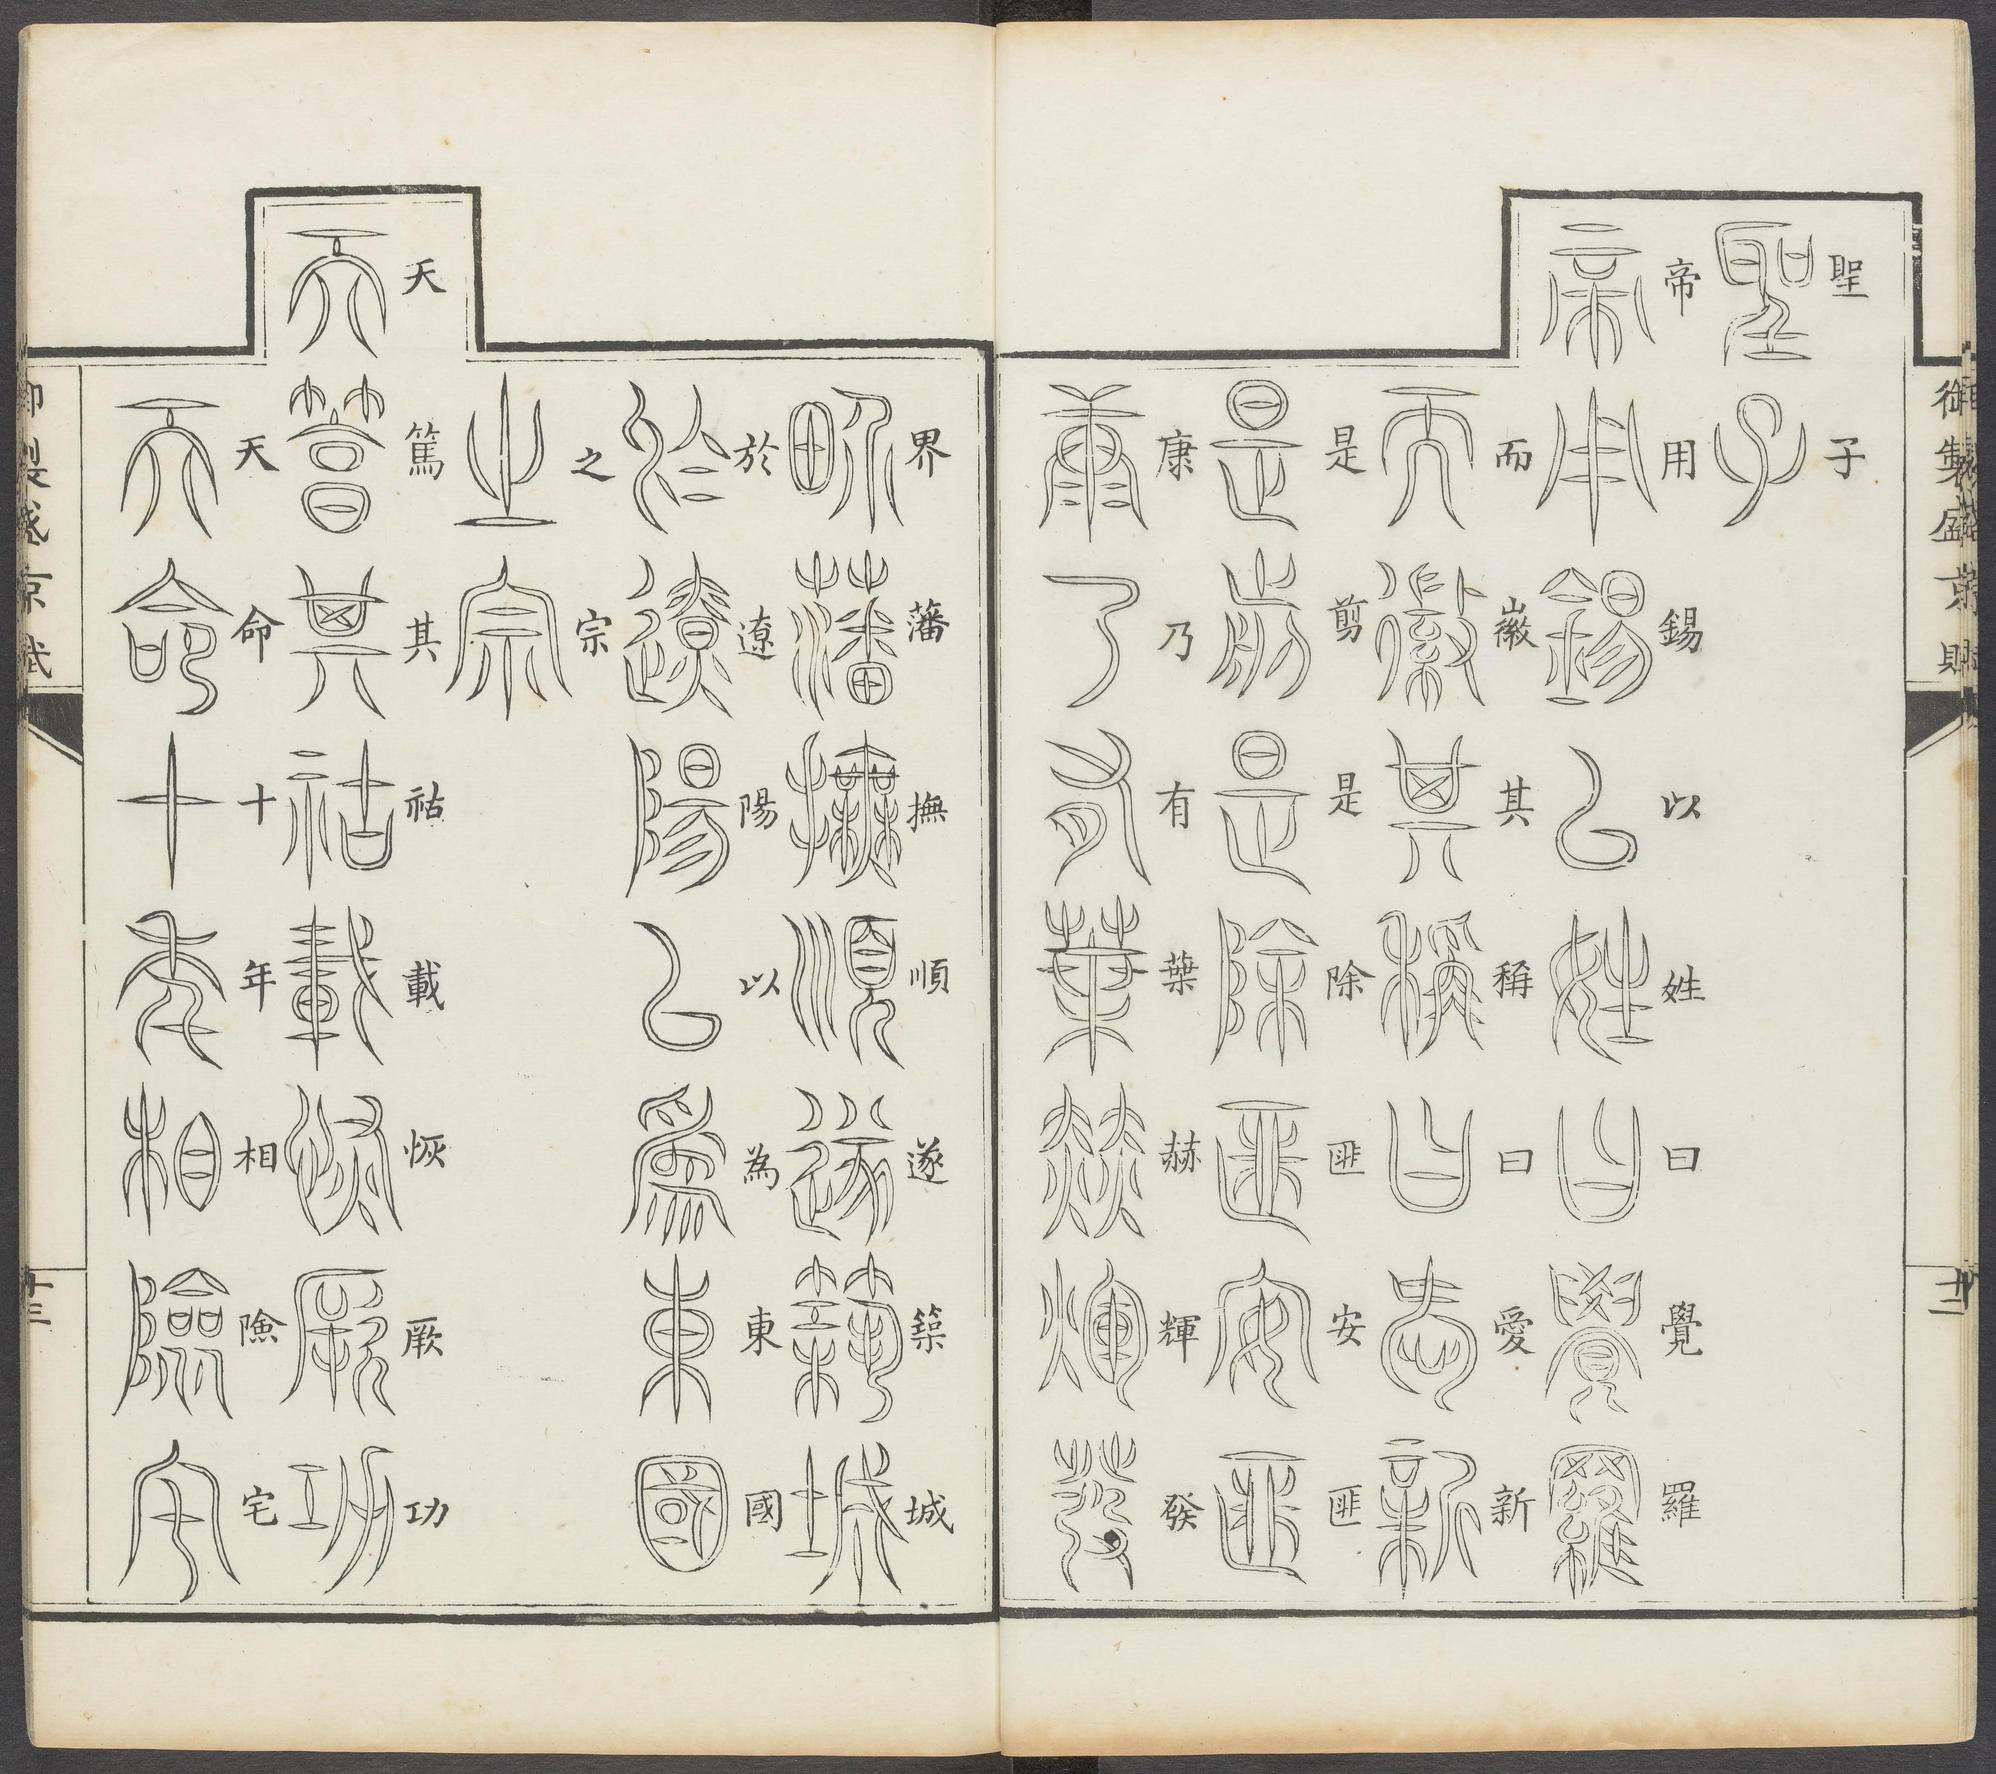 御製盛京賦
十二
聖子
帝用錫以姓曰覺羅
而徽其稱曰愛新
是剪是除匪安匪
康乃有葉赫輝發
界藩撫順遂築城
於遼陽以為東國
之宗
天篤其祜載恢厥功
天命十年相險宅
御製盛京賦
十三